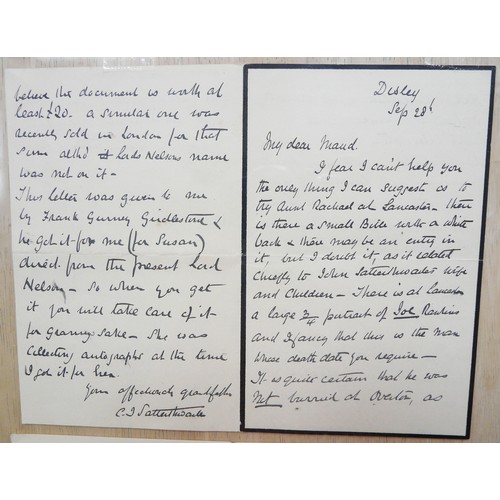 believe this document is worth at
least £20 - a similar one was
recently sold in London for that
sum altho' Lord Nelsons name
was not on it -
This letter was given to me
by Frank Gurney Girdlestone &
he got it for me (for Susan)
direct from the present Lord
Nelson - so when you get
it you will take care of it
for Granny's sake - She was
collecting autographs at the time
I got it for her.
Your affectionate grandfather
C J Satterthwaite
Disley
Sep 28th
My dear Maud
I fear I can't help you
the only thing I can suggest is to
try Aunt Rachael at Lancaster - there
is there a small Bible with a white
back & there may be an entry in
it, but I doubt it, as it
chiefly to John Satterthwaites wife
and children - There is at Lancaster
a large 3/4 portrait of Joe Rawlins
and I fancy that this is the man
whose death date you require -
It is quite certain that he was
Not buried at Overton, as